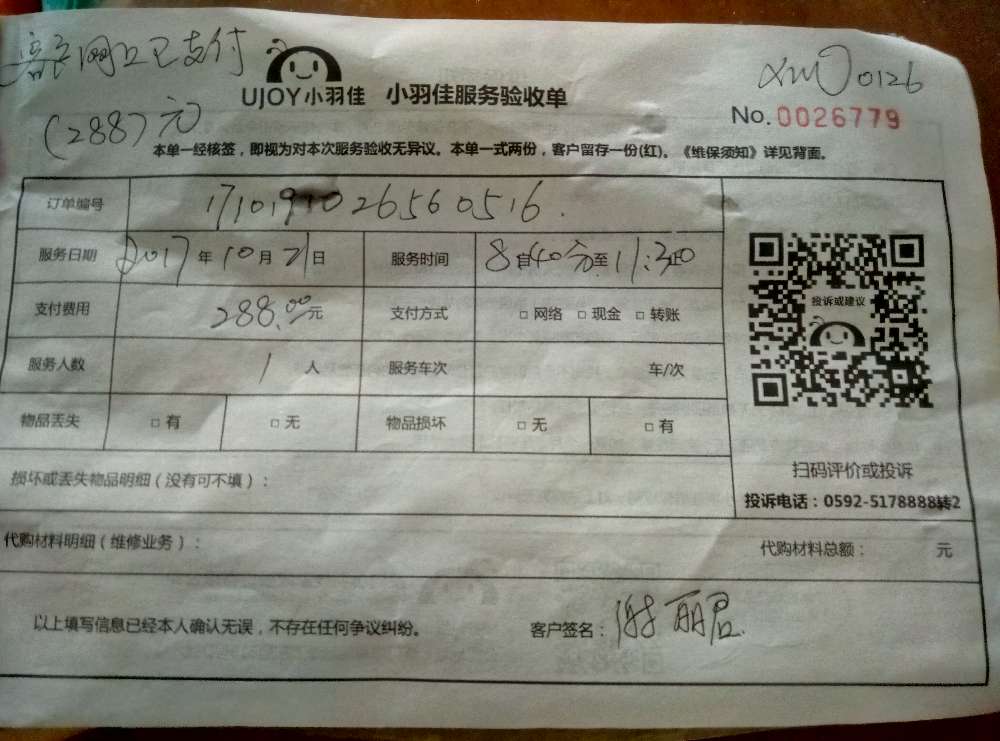 客户网上已支付
(288)元
UJOY小羽佳 小羽佳服务验收单
XM 0126
No. 0026779
本单一经核签，即视为对本次服务验收无异议。本单一式两份，客户留存一份(红)。《维保须知》详见背面。
订单编号 1710191026560516
服务日期 2017年10月21日 服务时间 8自40分至11:30
支付费用 288.00元 支付方式 □ 网络 □ 现金 □ 转账
投诉或建议
服务人数 1 人 服务车次 车/次
物品丢失 □ 有 □ 无 物品损坏 □ 无 □ 有
损坏或丢失物品明细（没有可不填）：
扫码评价或投诉
投诉电话：0592-5178888转2
代购材料明细（维修业务）： 代购材料总额： 元
以上填写信息已经本人确认无误，不存在任何争议纠纷。 客户签名：谢丽君